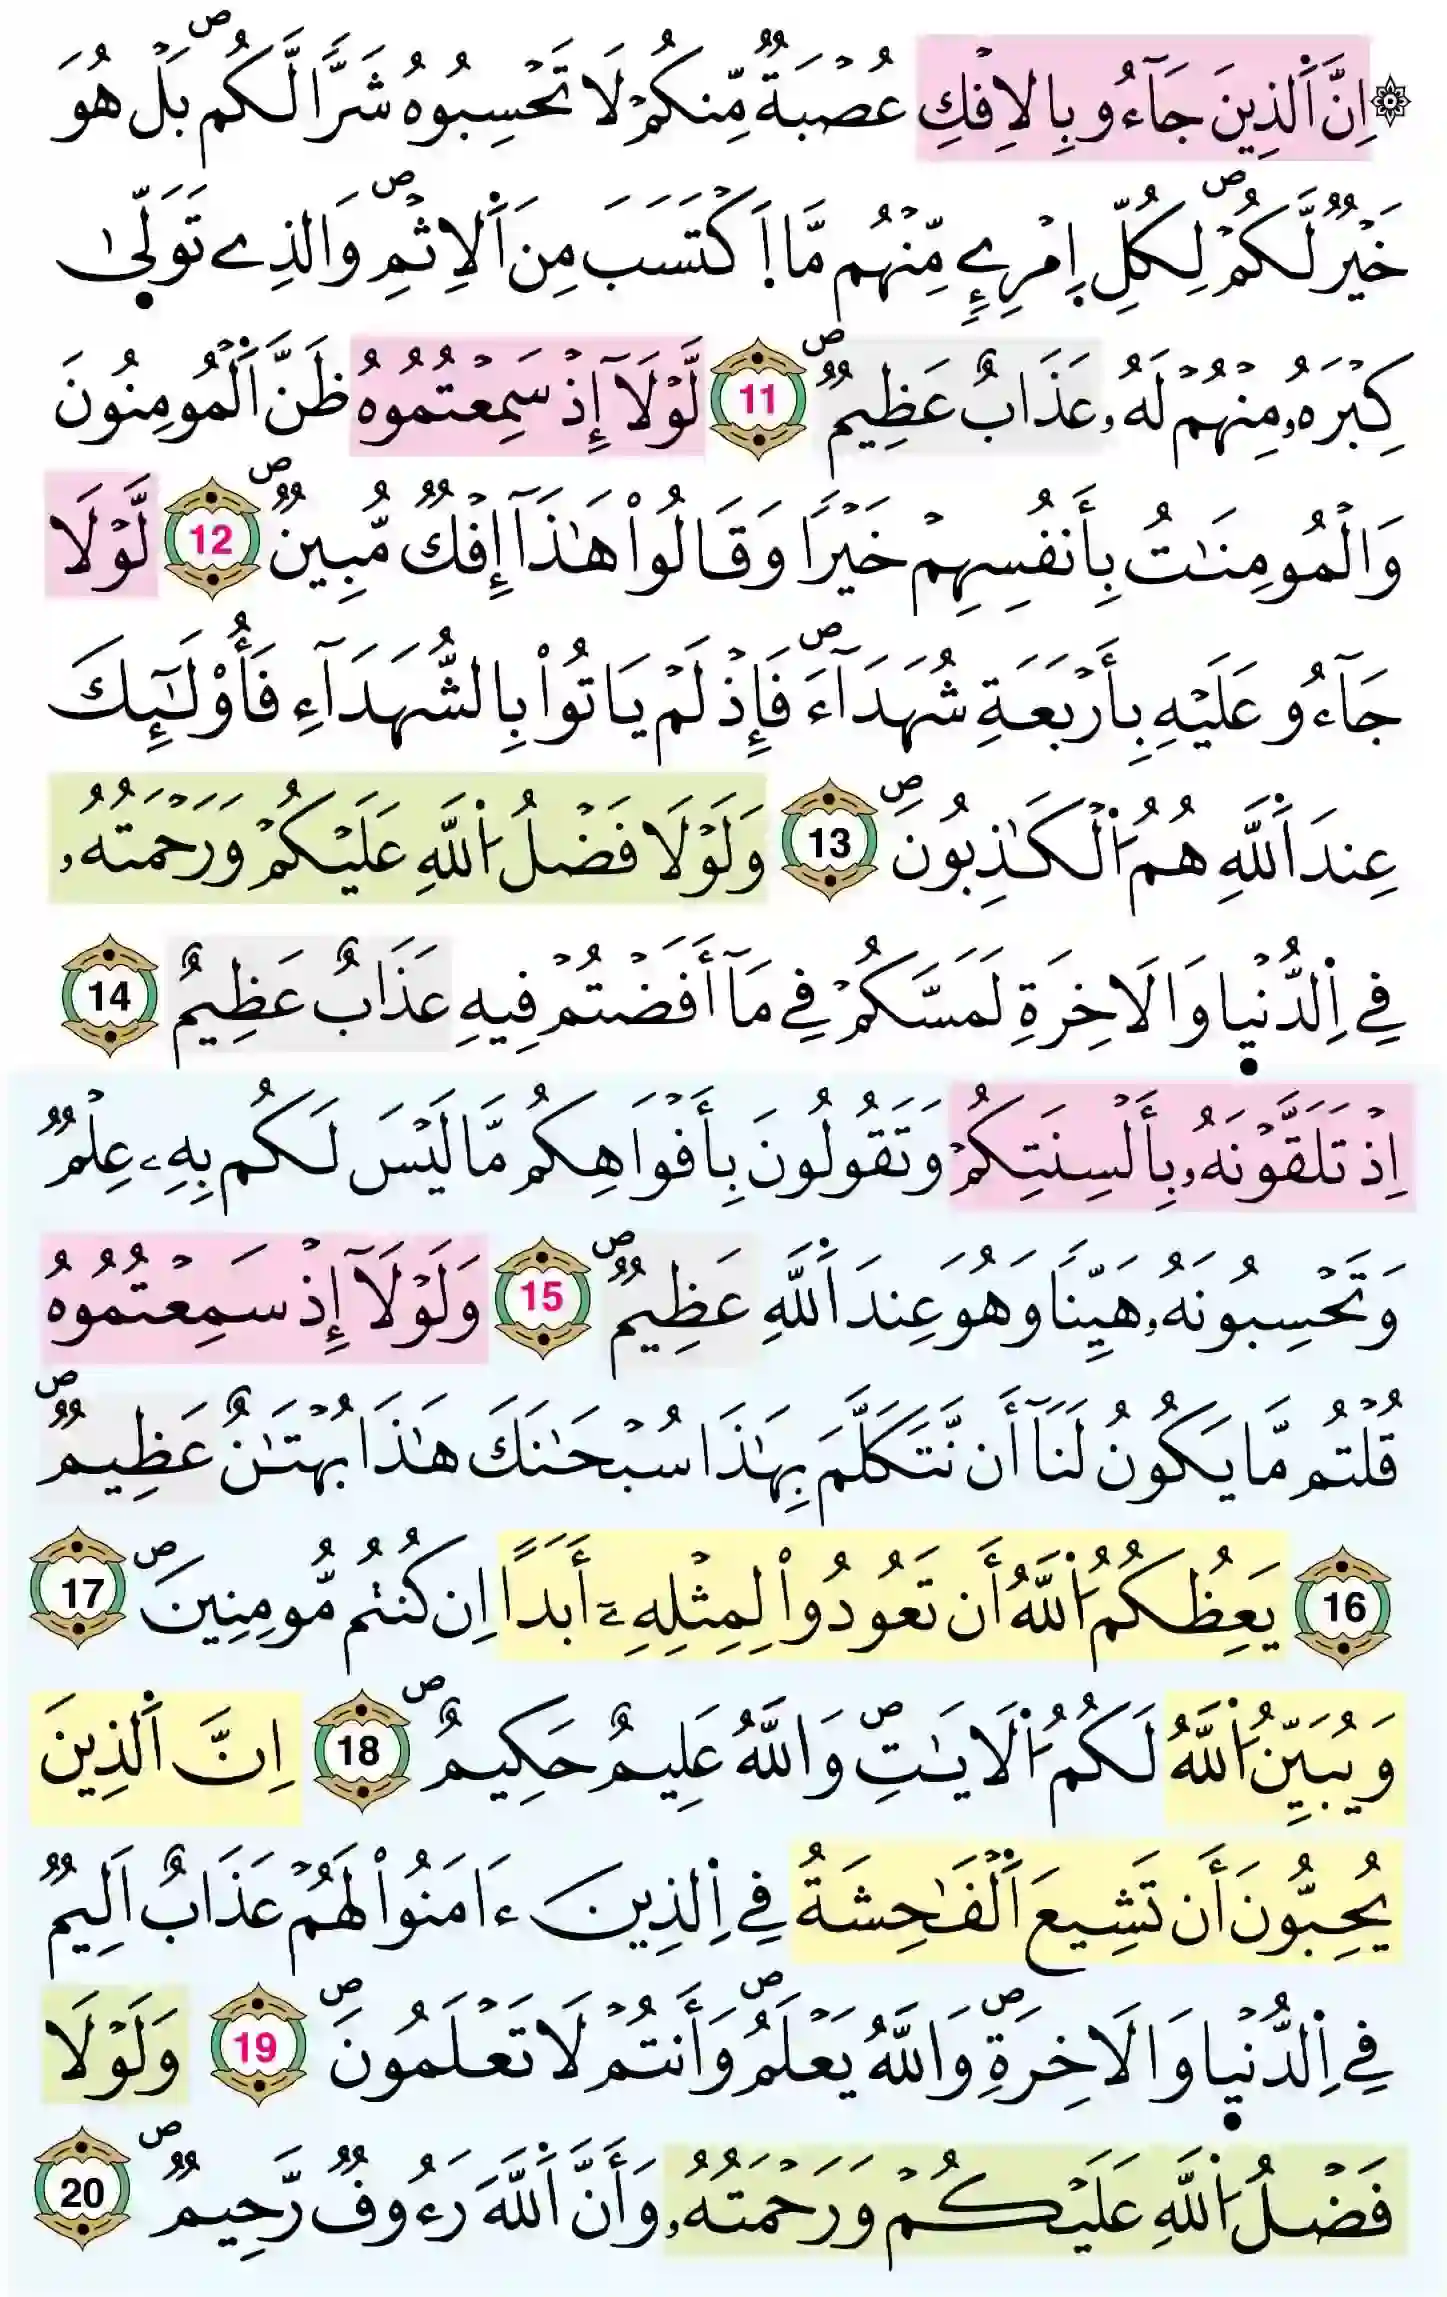 ۞اِنَّ اَ۬لذِينَ جَآءُو بِالِافْكِ عُصْبَةٞ مِّنكُمْ لَا تَحْسِبُوهُ شَرّاٗ لَّكُمۖ بَلْ هُوَ
خَيْرٞ لَّكُمْۖ لِكُلِّ اِ۪مْرِےٕٖ مِّنْهُم مَّا اَ۪كْتَسَبَ مِنَ اَ۬لِاثْمِۖ وَالذِے تَوَلّ۪يٰ
كِبْرَهُۥ مِنْهُمْ لَهُۥ عَذَابٌ عَظِيمٞۖ 11 لَّوْلَآ إِذْ سَمِعْتُمُوهُ ظَنَّ اَ۬لْمُومِنُونَ
وَالْمُومِنَٰتُ بِأَنفُسِهِمْ خَيْراٗ وَقَالُواْ هَٰذَآ إِفْكٞ مُّبِينٞۖ 12 لَّوْلَا
جَآءُو عَلَيْهِ بِأَرْبَعَةِ شُهَدَآءَۖ فَإِذْ لَمْ يَاتُواْ بِالشُّهَدَآءِ فَأُوْلَٰٓئِكَ
عِندَ اَ۬للَّهِ هُمُ اُ۬لْكَٰذِبُونَۖ 13 وَلَوْلَا فَضْلُ اُ۬للَّهِ عَلَيْكُمْ وَرَحْمَتُهُۥ
فِے اِ۬لدُّنْي۪ا وَالَاخِرَةِ لَمَسَّكُمْ فِے مَآ أَفَضْتُمْ فِيهِ عَذَابٌ عَظِيمٌ 14
اِذْ تَلَقَّوْنَهُۥ بِأَلْسِنَتِكُمْ وَتَقُولُونَ بِأَفْوَاهِكُم مَّا لَيْسَ لَكُم بِهِۦ عِلْمٞ
وَتَحْسِبُونَهُۥ هَيِّناٗ وَهُوَ عِندَ اَ۬للَّهِ عَظِيمٞۖ 15 وَلَوْلَآ إِذْ سَمِعْتُمُوهُ
قُلْتُم مَّا يَكُونُ لَنَآ أَن نَّتَكَلَّمَ بِهَٰذَا سُبْحَٰنَكَ هَٰذَا بُهْتَٰنٌ عَظِيمٞۖ
16 يَعِظُكُمُ اُ۬للَّهُ أَن تَعُودُواْ لِمِثْلِهِۦٓ أَبَداً اِن كُنتُم مُّومِنِينَۖ 17
وَيُبَيِّنُ اُ۬للَّهُ لَكُمُ اُ۬لَايَٰتِۖ وَاللَّهُ عَلِيمٌ حَكِيمٌۖ 18 اِنَّ اَ۬لذِينَ
يُحِبُّونَ أَن تَشِيعَ اَ۬لْفَٰحِشَةُ فِے اِ۬لذِينَ ءَامَنُواْ لَهُمْ عَذَابٌ اَلِيمٞ
فِے اِ۬لدُّنْي۪ا وَالَاخِرَةِۖ وَاللَّهُ يَعْلَمُۖ وَأَنتُمْ لَا تَعْلَمُونَۖ 19 وَلَوْلَا
فَضْلُ اُ۬للَّهِ عَلَيْكُمْ وَرَحْمَتُهُۥ وَأَنَّ اَ۬للَّهَ رَءُوفٞ رَّحِيمٞۖ 20